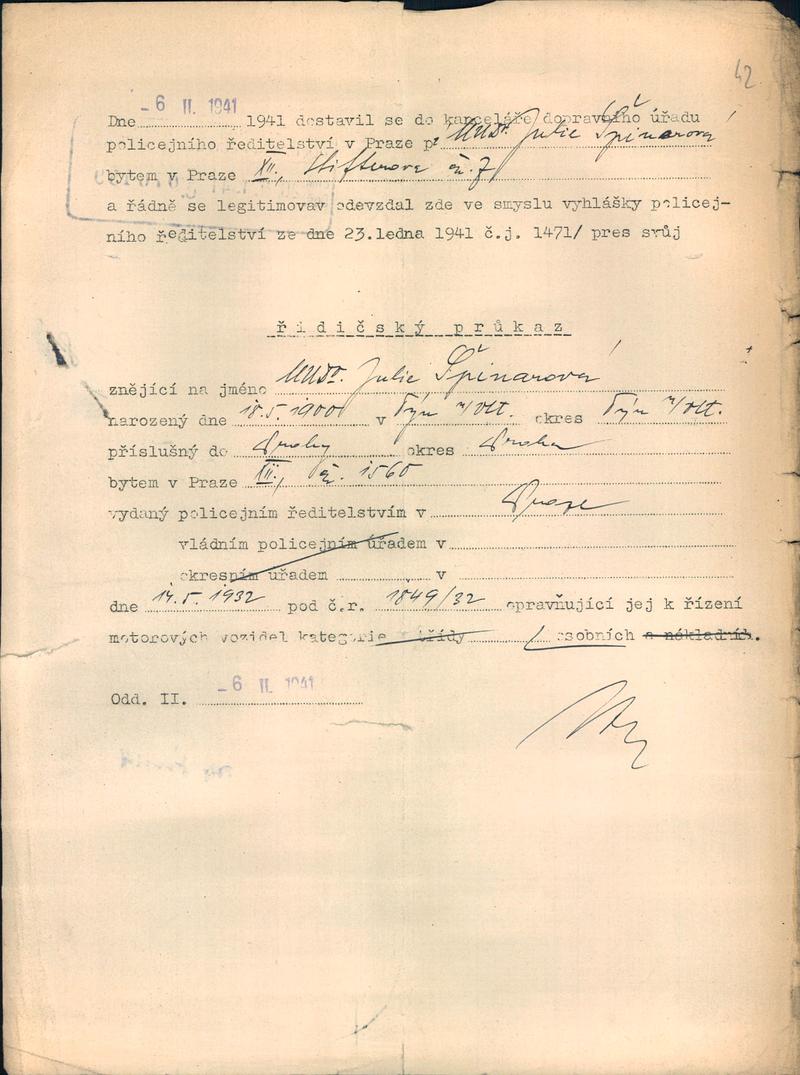 42
- 6 II. 1941
Dne 1941 dostavil se do kanceláře dopravního úřadu
policejního ředitelství v Praze p. MUDr. Julie Špinarová
bytem v Praze XII., č. 7
a řádně se legitimovav odevzdal zde ve smyslu vyhlášky policej-
ního ředitelství ze dne 23.ledna 1941 č.j. 1471/ pres svůj
řidičský průkaz
znějící na jméno MUDr. Julie Špinarová
narozený dne 18.5.1900 v Týn n/Vlt. okres Týn n/Vlt.
příslušný do Prahy okres Praha
bytem v Praze XII., č. 1560
vydaný policejním ředitelstvím v Praze
vládním policejním úřadem v
okresním úřadem v
dne 14.5.1932 pod č.r. 1849/32 opravňující jej k řízení
motorových vozidel kategorie třídy osobních a nákladních.
Odd. II. - 6 II. 1941